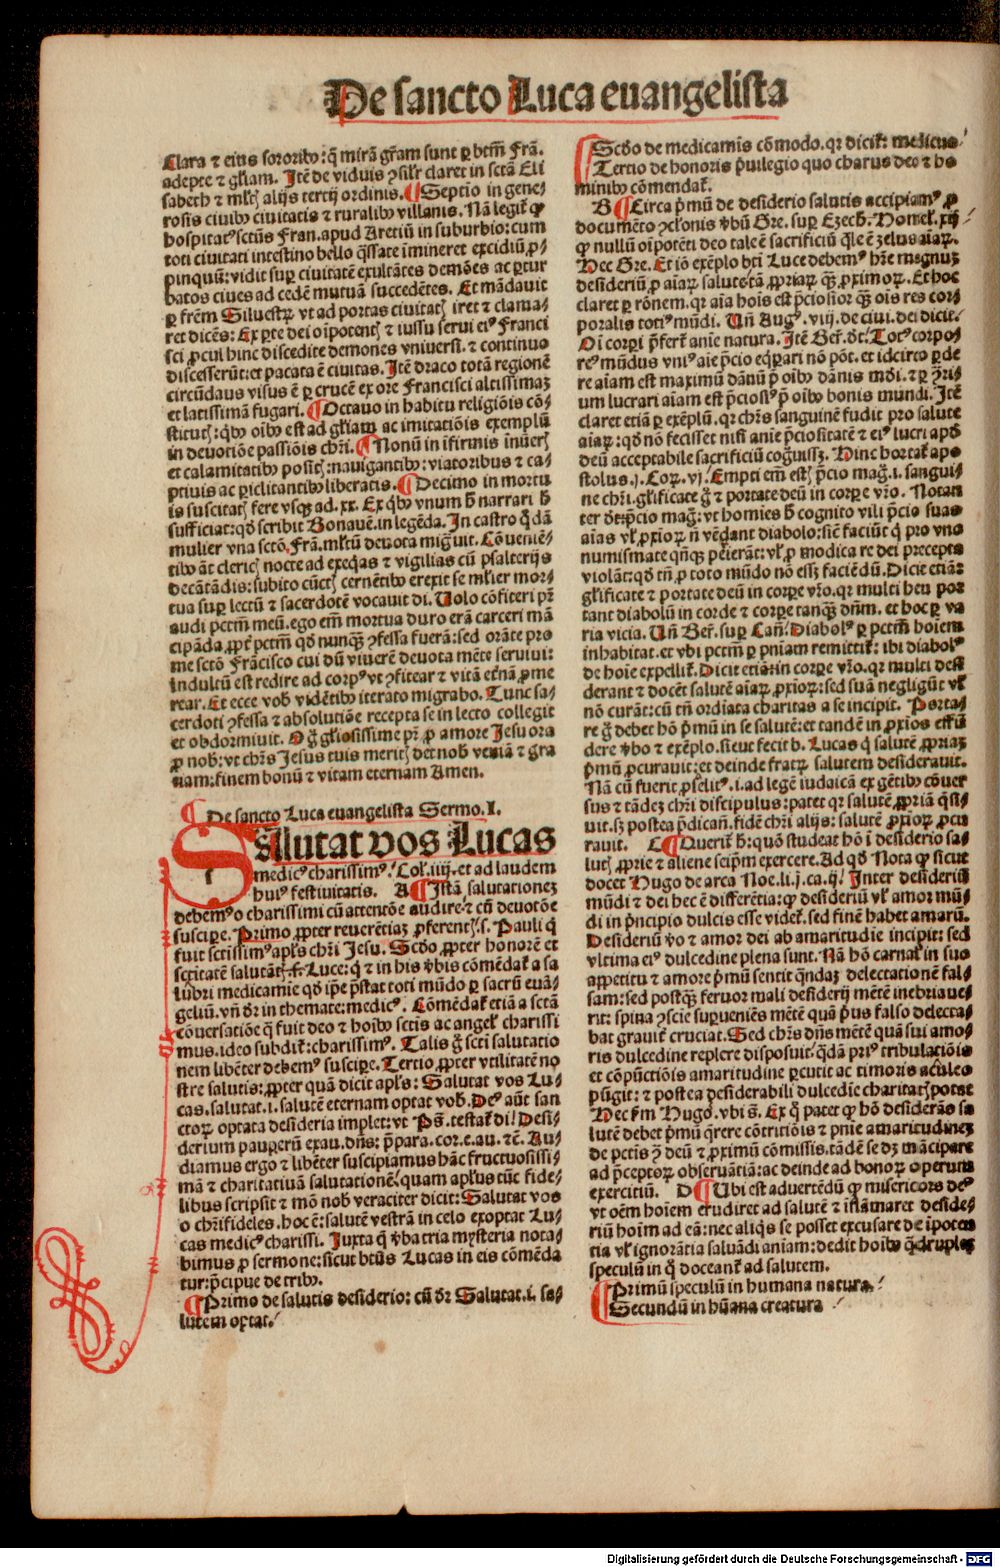 De sancto Luca euangelista
Clara ⁊ eius sororibꝰ: q̄ mirā gr̄am sunt ꝑ btm̄ Frā.
adepte ⁊ gl̄iam. Itē de viduis ꝯsil'r claret in sctā Eli
sabeth ⁊ ml'tꝭ alijs tertij ordinis. ¶ Septīo in gene⸗
rosis ciuibꝰ ciuitatis ⁊ ruralibꝰ villanis. Nā legit̄ ꝙ
hospitatꝰ sctūs Fran. apud Aretiū in suburbio: cum
toti ciuitati intestino bello q̄ssate īmineret excidiū ꝓ⸗
pinquū: vidit suꝑ ciuitatē exultātes demōes ac ꝑtur
batos ciues ad cedē mutuā succedētes. Et mādauit
ꝑ frēm Siluestrꝝ vt ad portas ciuitatꝭ iret ⁊ clama⸗
ret dicēs: Ex ꝑte dei oīpotentꝭ ⁊ iussu serui eiꝰ Franci
sci ꝓcul hinc discedite demones vniuersi. ⁊ continuo
discesserūt: et pacata ē ciuitas. Itē draco totā regionē
circūdaus visus ē ꝑ crucē ex ore Francisci altissimaꝫ
et latissimā fugari. ¶ Octauo in habitu religiōis cō⸗
stitutꝭ: qͥbꝰ oībꝰ est ad gl̄iam ac imitatiōis exemplū
in deuotiōe passiōis chr̄i. ¶ Nonū in īfirmis inuētꝭ
et calamitatibꝰ positꝭ: nauigantibꝰ: viatoribus ⁊ ca⸗
ptiuis ac ꝑiclitantibꝰ liberatis. ¶ Decimo in mortu
is suscitatꝭ fere vsqꝫ ad .xx. Ex qͥbꝰ vnum h̄ narrari h̄
sufficiat: qd̄ scribit Bonauē. in legēda. In castro q̄dā
mulier vna sctō. Frā. ml'tū deuota migͣuit. Cōueniē⸗
tibꝰ āt clericꝭ nocte ad exeq̄as ⁊ vigilias cū psalterijs
decātādis: subito cūctꝭ cernētibꝰ erexit se ml'ier mor⸗
tua suꝑ lectū ⁊ sacerdotē vocauit di. Uolo cōfiteri pr̄
audi pctm̄ meū. ego em̄ mortua duro erā carceri mā
cipāda, ꝓpt' pctm̄ qd̄ nunqꝫ ꝯfessa fuerā: sed orāte pro
me sctō Frācisco cui dū viuerē deuota mēte seruiui:
indultū est redire ad corpꝰ vt ꝯfitear ⁊ vitā et̄nā ꝓme
rear. Et ecce vob̄ vidētibꝰ iterato migrabo. Tunc sa⸗
cerdoti ꝯfessa ⁊ absolutiōe recepta se in lecto collegit
et obdormiuit. O g̊ gl̄iosissime pr̄ ꝓ amore Jesu ora
ꝓ nob̄: vt chr̄s Jesus tuis meritꝭ det nob̄ veniā ⁊ gra
tiam: finem bonū ⁊ vitam eternam Amen.
¶ De sancto Luca euangelista Sermo. I.
SAlutat vos Lucas
medicꝰ charissimꝰ. Col'. iiij. et ad laudem
huiꝰ festiuitatis. A ¶ Istā salutationeꝫ
debemꝰ o charissimi cū attentōe audire ⁊ cū deuotōe
suscipe. Primo ꝓpter reuerētiaꝫ ꝓferentꝭ. s. Pauli q̄
fuit sctissimꝰ apl's chr̄i Jesu. Scd̄o ꝓpter honorē et
sctitatē salutātꝭ. s. Luce: q̄ ⁊ in his v̄bis cōmēdat̄ a sa
lubri medicamie qd̄ ip̄e p̄stat toti mūdo ꝑ sacrū euā⸗
geliū. vn̄ dr̄ in themate: medicꝰ. Cōmēdat̄ etiā a sctā
cōuersatiōe q̄ fuit deo ⁊ hoībꝰ sctīs ac angel' charissi
mus. ideo subdit̄: charissimꝰ. Talis g̊ scti salutatio
nem libēter debemꝰ suscipe. Tertio ꝓpter vtilitatē no
stre salutis: ꝓpter quā dicit apl's: Salutat vos Lu⸗
cas. salutat .i. salutē eternam optat vob̄. Deꝰ aūt san
ctoꝝ optata desideria implet: vt Ps̄. testat̄ di. Desi⸗
derium pauꝑerū exau. dn̄s: p̄para. cor. e. au. ⁊c̄. Au⸗
diamus ergo ⁊ libēter suscipiamus hāc fructuosissi⸗
mā ⁊ charitatiuā salutationē. quam apl'us tūc fide⸗
libus scripsit ⁊ mō nob̄ veraciter dicit: Salutat vos
o chr̄ifideles. hoc ē: salutē vestrā in celo exoptat Lu⸗
cas medicꝰ charissi. Juxta q̄ v̄ba tria mysteria nota⸗
bimus ꝓ sermone: sicut btūs Lucas in eis cōmēda
tur: p̄cipue de tribꝰ.
¶ Primo de salutis desiderio: cū dr̄ Salutat .i. sa⸗
lutem optat.
Scd̄o de medicamīs cōmodo. qꝛ dicit̄: medicus
Tertio de honoris p̄uilegio quo charus deo ⁊ ho
minibꝰ cōmendat̄.
B ¶ Circa p̄mū de desiderio salutis accipiamꝰ ꝓ
documēto ꝯcl̄onis v̄bū Gre. suꝑ Ezech. Homel'. xij
ꝙ nullū oīpotēti deo tale ē sacrificiū q̄le ē zelus aīaꝝ.
Hec Gre. Et iō exēplo bt̄i Luce debemꝰ hr̄e magnuꝫ
desideriū ꝓ aīaꝝ salute tā ꝓpriaꝝ qꝫ ꝓximoꝝ. Et hoc
claret ꝑ rōnem. qꝛ aīa hoīs est p̄ciosior qꝫ oīs res cor⸗
poralis totiꝰ mūdi. Un̄ Augꝰ. viij. de ciui. dei dicit.
Oī corpi p̄fert̄ anie natura. Itē Ber̄. dt. Totꝰ corpo⸗
reꝰ mūdus vniꝰ aīe p̄cio eqꝑari nō pōt. et idcirco ꝑde
re aīam est maximū dānū p̄ oībꝰ dānis mūdi. ⁊ ꝑ ꝯtri⸗
um lucrari aīam est p̄ciosiꝰ p̄ oībꝰ bonis mundi. Itē
claret etiā ꝑ exēplū. qꝛ chr̄s sanguinē fudit pro salute
aīaꝝ: qd̄ nō fecisset nisi anie p̄ciositatē ⁊ eiꝰ lucri apd̄
deū acceptabile sacrificiū cog̊uissꝫ. Hinc hortat̄ apo
stolus .j. Coꝝ. vj. Empti em̄ estꝭ p̄cio mag̊. i. sangui⸗
ne chr̄i. gl'ificate g̊ ⁊ portate deū in corꝑe vr̄o. Notan
ter dr̄: p̄cio mag̊: vt homies h̄ cognito vili p̄cio suas
aīas vl' ꝓxioꝝ n̄ vēdant diabolo: sic faciūt q̄ pro vno
numismate qn̄qꝫ peierāt: vl' ꝓ modica re dei precepta
violāt: qd̄ tn̄ ꝓ toto mūdo nō essꝫ faciēdū. Dicit etiā:
gl'ificate ⁊ portate deū in corꝑe vr̄o. qꝛ multi heu por
tant diabolū in corde ⁊ corꝑe tanqꝫ dn̄m. et hoc ꝑ va
ria vicia. Un̄ Ber̄. suꝑ Can̄. Diabolꝰ ꝑ pctm̄ hoiem
inhabitat. et vbi pctm̄ ꝑ pniam remittit̄: ibi diabolꝰ
de hoīe expellit̄. Dicit etiā: in corꝑe vr̄o. qꝛ multi desi
derant ⁊ docēt salutē aīaꝝ ꝓxioꝝ: sed suā negligūt vl'
nō curāt: cū tn̄ ordiata charitas a se incipit. Porta⸗
re g̊ debet hō p̄mū in se salutē: et tandē in ꝓxios effū
dere v̄bo ⁊ exēplo. sicut fecit b. Lucas q̄ salutē ꝓpriaꝫ
p̄mū ꝓcurauit: et deinde fratꝝ salutem desiderauit.
Nā cū fuerit ꝓselitꝰ. i. ad legē iudaicā ex gētibꝰ cōuer
sus ⁊ tādeꝫ chr̄i discipulus: patet qꝛ salutē ꝓpriā q̄si⸗
uit. sꝫ postea p̄dicaū. fidē chr̄i alijs: salutē ꝓxioꝝ ꝓcu
rauit. C ¶ Querit̄ h̄: quō studeat hō ī desiderio sa⸗
lutꝭ ꝓprie ⁊ aliene seip̄m exercere. Ad qd̄ Nota ꝙ sicut
docet Hugo de arca Noe. li. j. ca. ij. Inter desideriū
mūdi ⁊ dei hec ē differētia: ꝙ desideriū vl' amor mū⸗
di in p̄ncipio dulcis esse videt̄. sed finē habet amarū.
Desideriū v̄o ⁊ amor dei ab amaritudie incipit: sed
vltima eiꝰ dulcedine plena sunt. Nā hō carnal' in suo
appetitu ⁊ amore p̄mū sentit qͣndaꝫ delectationē fal⸗
sam: sed postqꝫ feruor mali desiderij mētē inebriaue⸗
rit: spina ꝯscie suꝑueniēs mētē quā p̄us falso delecta⸗
bat grauit̄ cruciat. Sed chr̄s dn̄s mētē quā sui amo⸗
ris dulcedine replere disposuit, q̄dā priꝰ tribulatiōis
et cōpūctiōis amaritudine ꝑcutit ac timoris aculeo
pūgit: ⁊ postea desiderabili dulcedīe charitatꝭ potat
Hec fm̄ Hugo. vbi s̄. Ex q̄ patet ꝙ hō desiderās sa
lutē debet p̄mū q̄rere cōtritiōis ⁊ pnie amaritudineꝫ
de pctīs ꝯ deū ⁊ ꝓximū cōmissis. tādē se dꝫ mācipare
ad p̄ceptoꝝ obseruātiā: ac deinde ad bonoꝝ operum
exercitiū. D ¶ Ubi est aduertēdū ꝙ misericors deꝰ
vt oēm hoīem erudiret ad salutē ⁊ īflāmaret deside⸗
riū hoīm ad eā: nec aliqͥs se posset excusare de īpoten
tia vl' ignorātia saluādi aniam: dedit hoībꝰ q̄druplex
speculū in q̊ doceant̄ ad salutem.
¶ Primū speculū in humana natura.
Secundū in hūana creatura
Digitalisierung gefördert durch die Deutsche Forschungsgemeinschaft - DFG